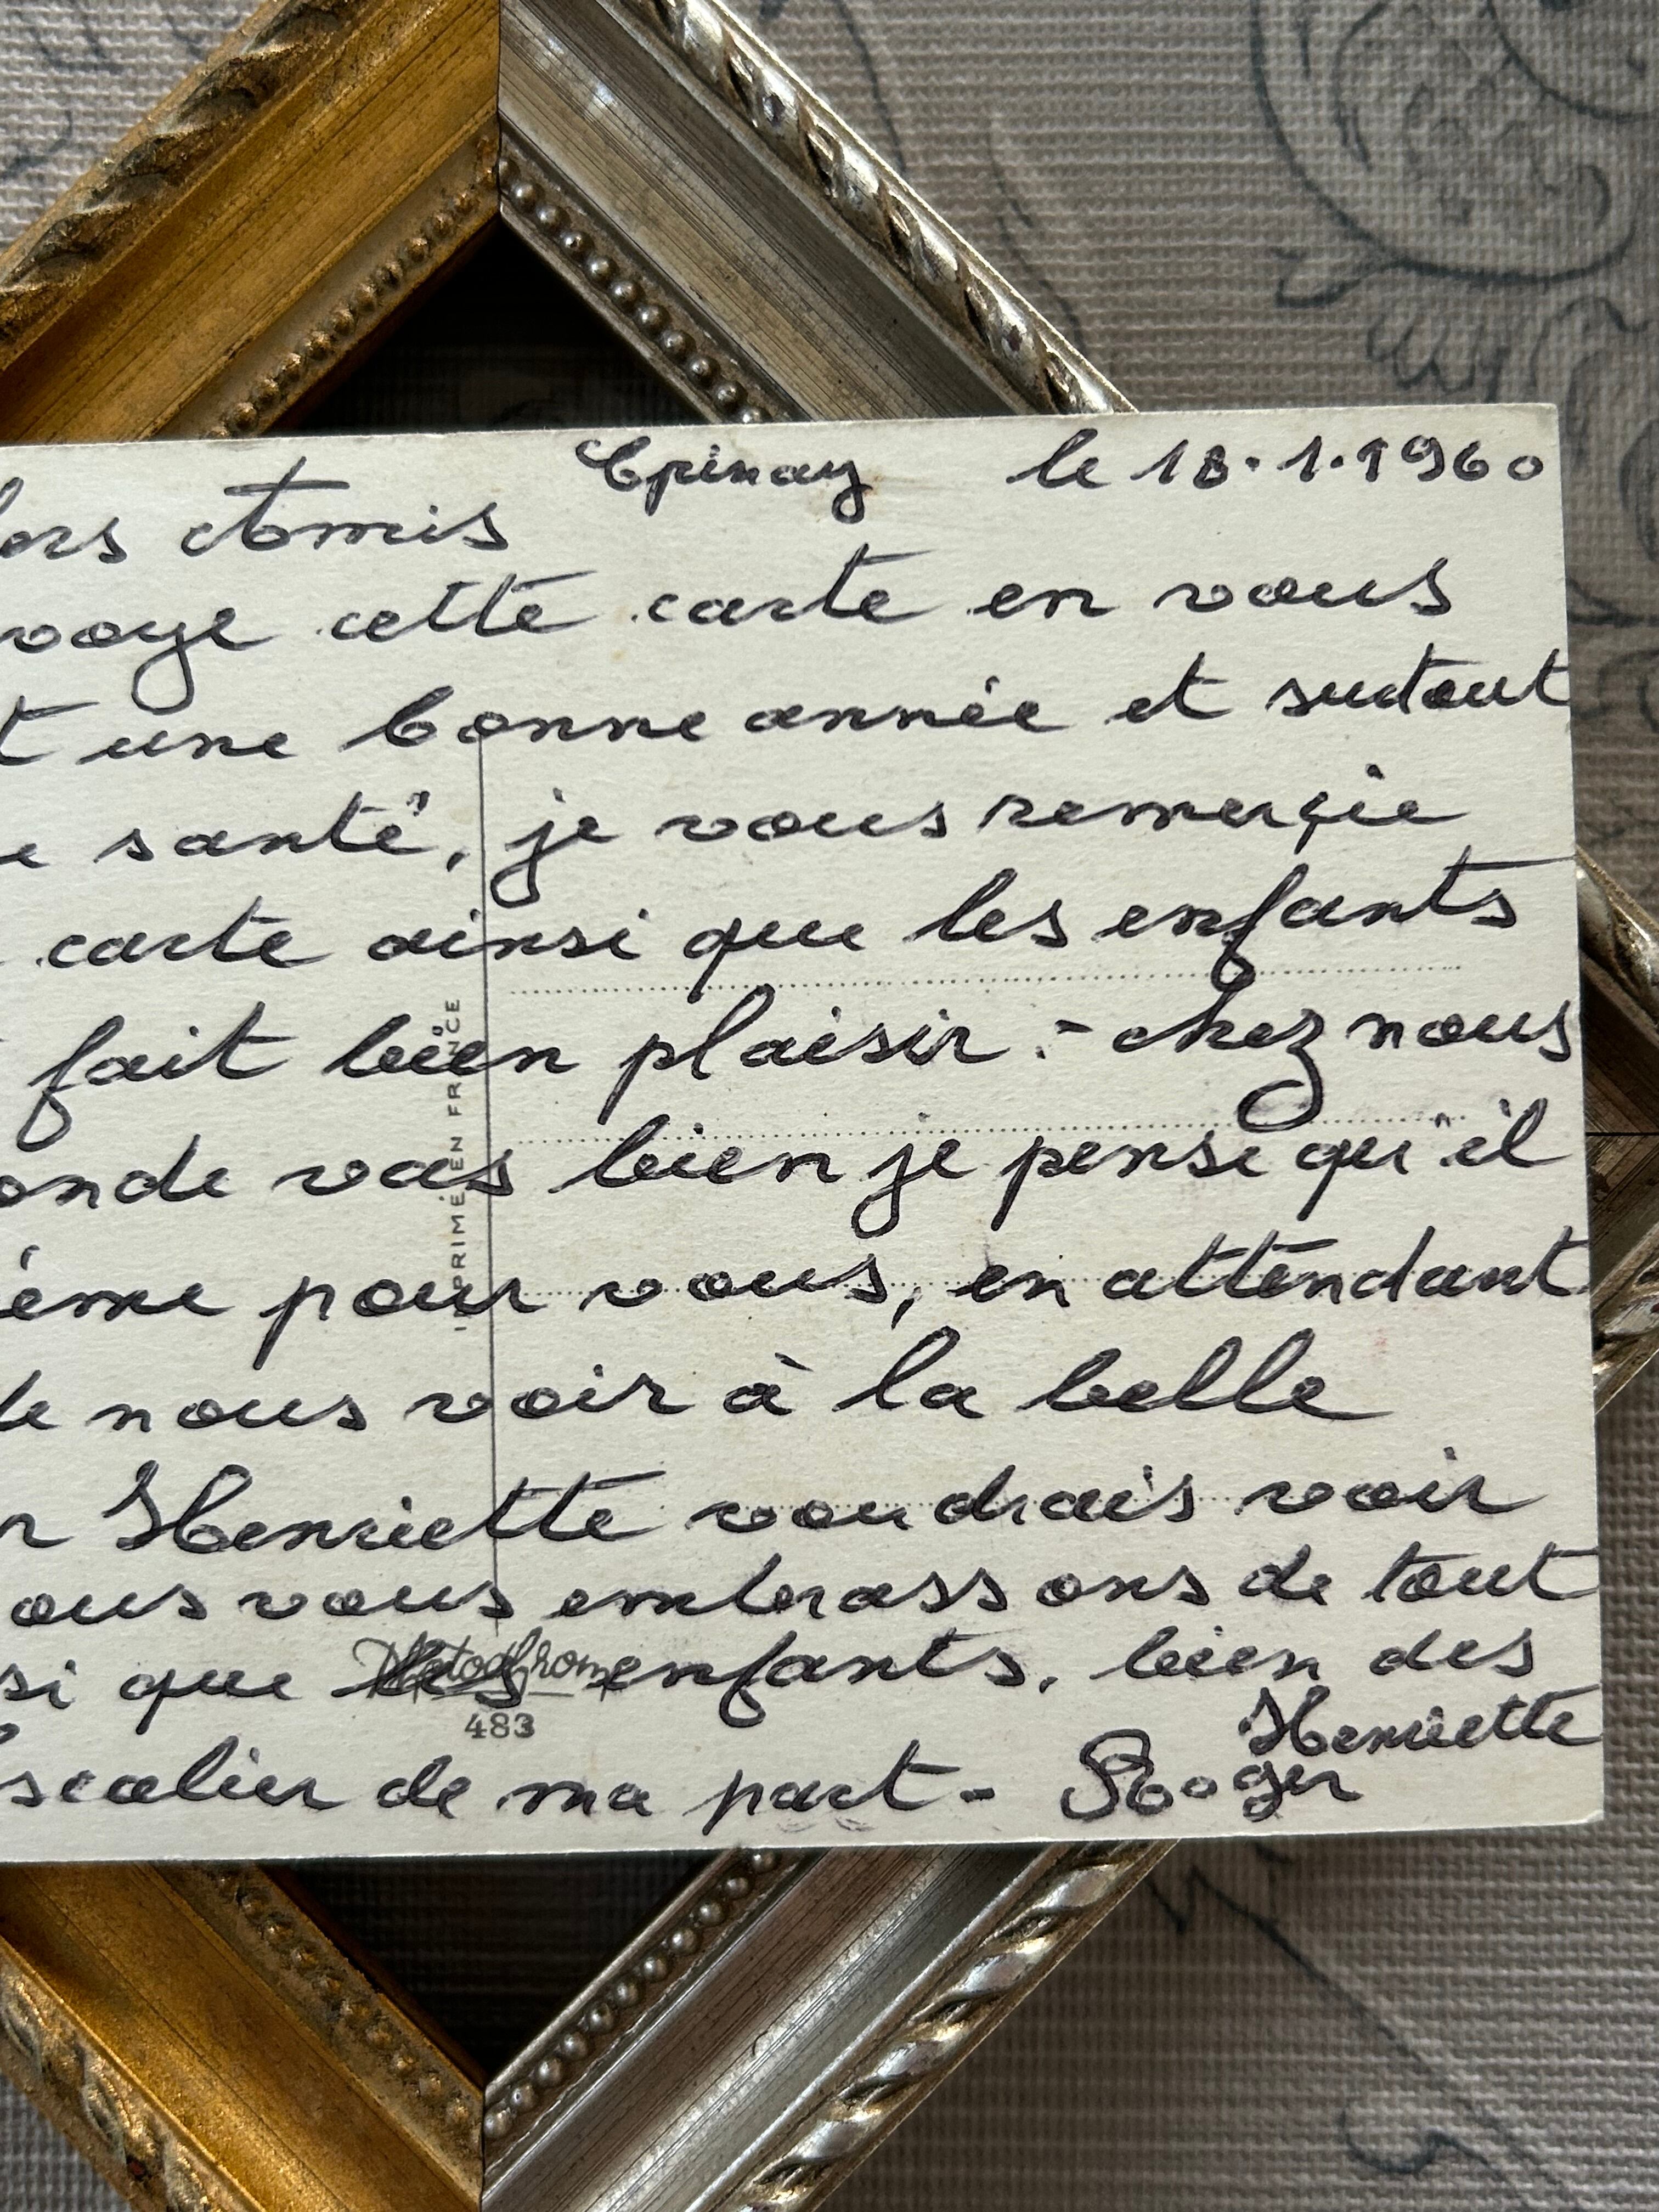 Epinay le 18.1.1960
ers Amis
voye cette carte en vous
t une bonne année et surtout
e santé, je vous remerçie
carte ainsi que les enfants
fait bien plaisir :- chez nous
onde vas bien je pense qu'il
ême pour vous, en attendant
de nous voir à la belle
r Henriette voudrais voir
ous vous embrassons de tout
si que les enfants, bien des
Henriette
scalier de ma part - Roger
IMPRIMÉ EN FRANCE
Photochrom
483